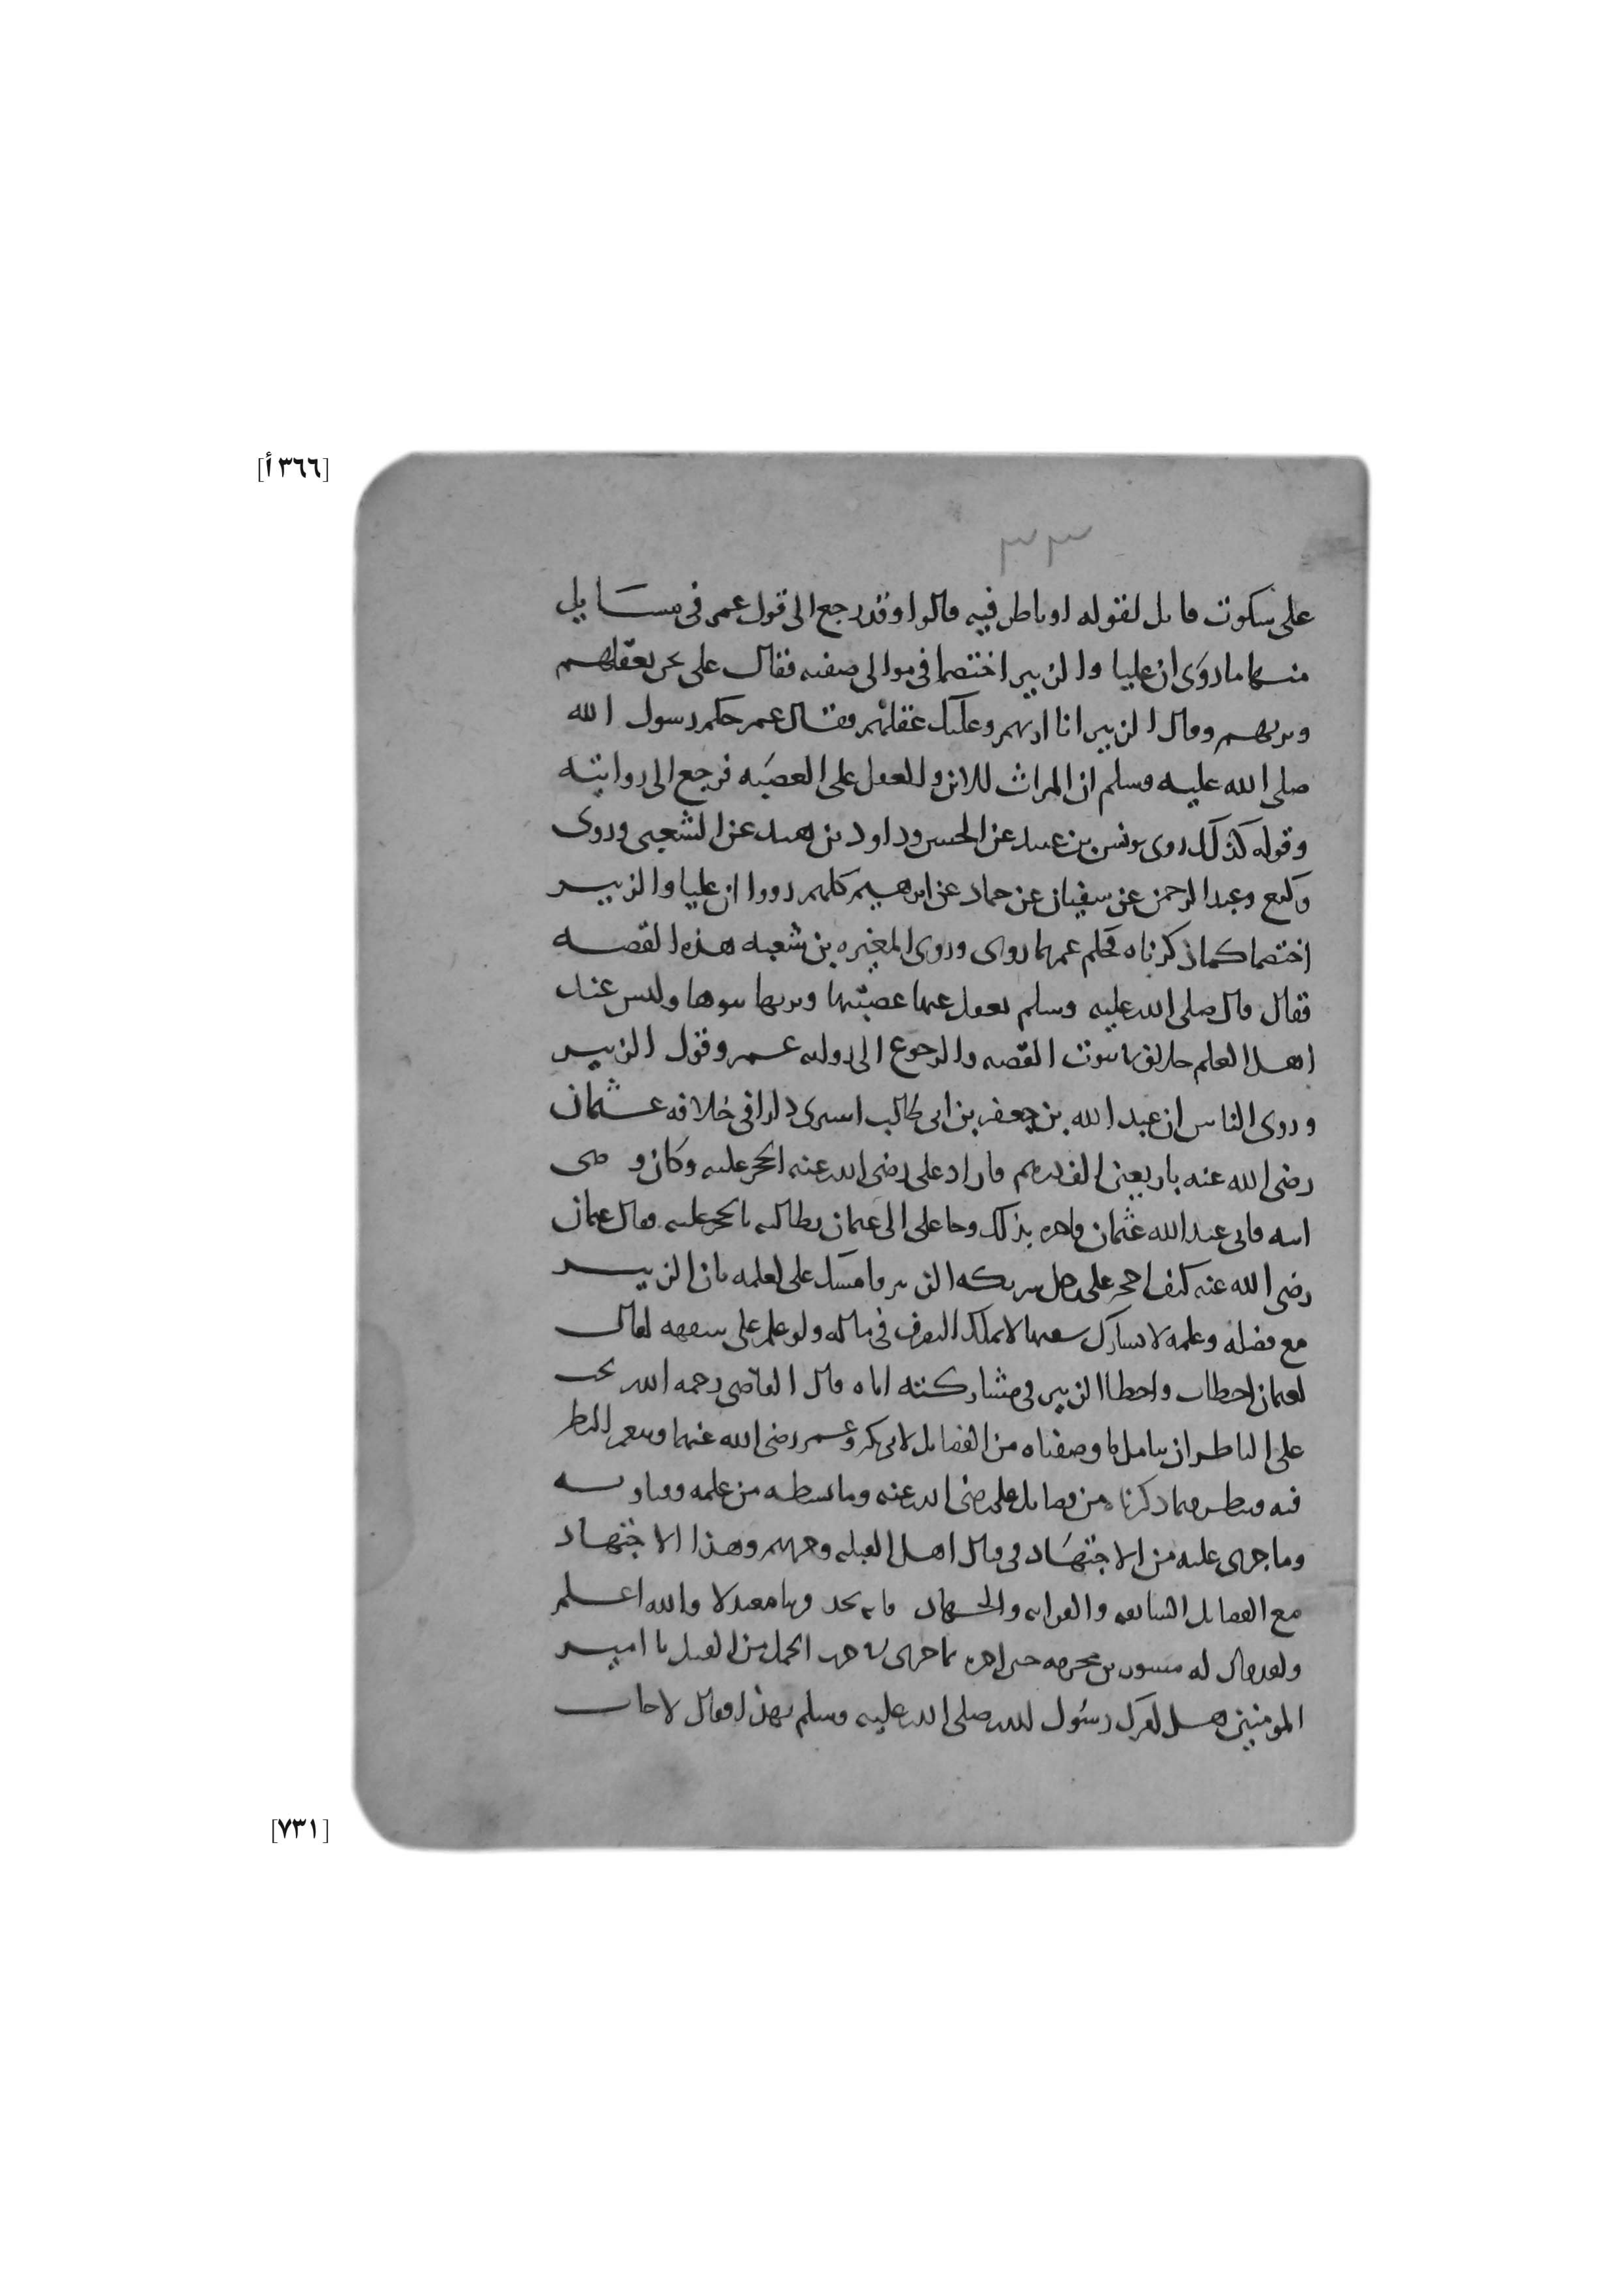 [٣٦٦ أ]
٣٣
على سكوت قائل لقوله او باطل فيه قالوا وقد رجع الى قول عمر في مسايل
منها ما روى ان عليا والزبير اختصما في موالى صفيه فقال على نحن نعقلهم
ونرثهم وقال الزبير انا ارثهم وعليك عقلهم فقال عمر حكم رسول الله
صلى الله عليه وسلم ان الميراث للابن والعقل على العصبه فرجع الى روايته
وقوله كذلك روى يونس بن عبيد عن الحسن وداود بن هند عن الشعبي وروى
وكيع وعبد الرحمن عن سفيان عن حماد عن ابرهيم كلهم رووا ان عليا والزبير
اختصما كما ذكرناه فحكم عمر بما روى وروى المغيره بن شعبه هذه القصه
فقال قال صلى الله عليه وسلم يعقل عنها عصبتها ويرثها بنوها وليس عند
اهل العلم خلاف ثبوت القصه والرجوع الى روايه عمر وقول الزبير
وروى الناس ان عبد الله بن جعفر بن ابى طالب اشترى دارا في خلافه عثمان
رضى الله عنه باربعين الف درهم فاراد على رضى الله عنه الحجر عليه وكان وصى
ابيه فاتى عبد الله عثمان واخبره بذلك وجا على الى عثمان يطالبه بالحجر عليه فقال عثمان
رضى الله عنه كيف احجر على رجل شريكه الزبير فامسك على لعلمه بان الزبير
مع فضله وعلمه لا يشارك سفيها لا يملك التصرف في ماله ولو علم على سفهه لقال
لعثمان اخطات واخطا الزبير في مشاركته اياه قال القاضى رحمه الله يجب
على الناظر ان يتامل ما وصفناه من الفضايل لابى بكر وعمر رضى الله عنهما وينعم النظر
فيه وينظر فيما ذكرناه من فضايل على رضى الله عنه وما بسطه من علمه وفتاويه
وما جرى عليه من الاجتهاد في قتال اهل القبله وحربهم وهذا الاجتهاد
مع الفضايل السابقه والقرابه والجهاد فانه يجد قولا معتدلا والله اعلم
ولقد قال له مسور بن مخرمه حين اخبره بما جرى له حرب الجمل من القتل يا امير
المومنين هل اخبرك رسول الله صلى الله عليه وسلم بهذا فقال لا
[٧٣١]